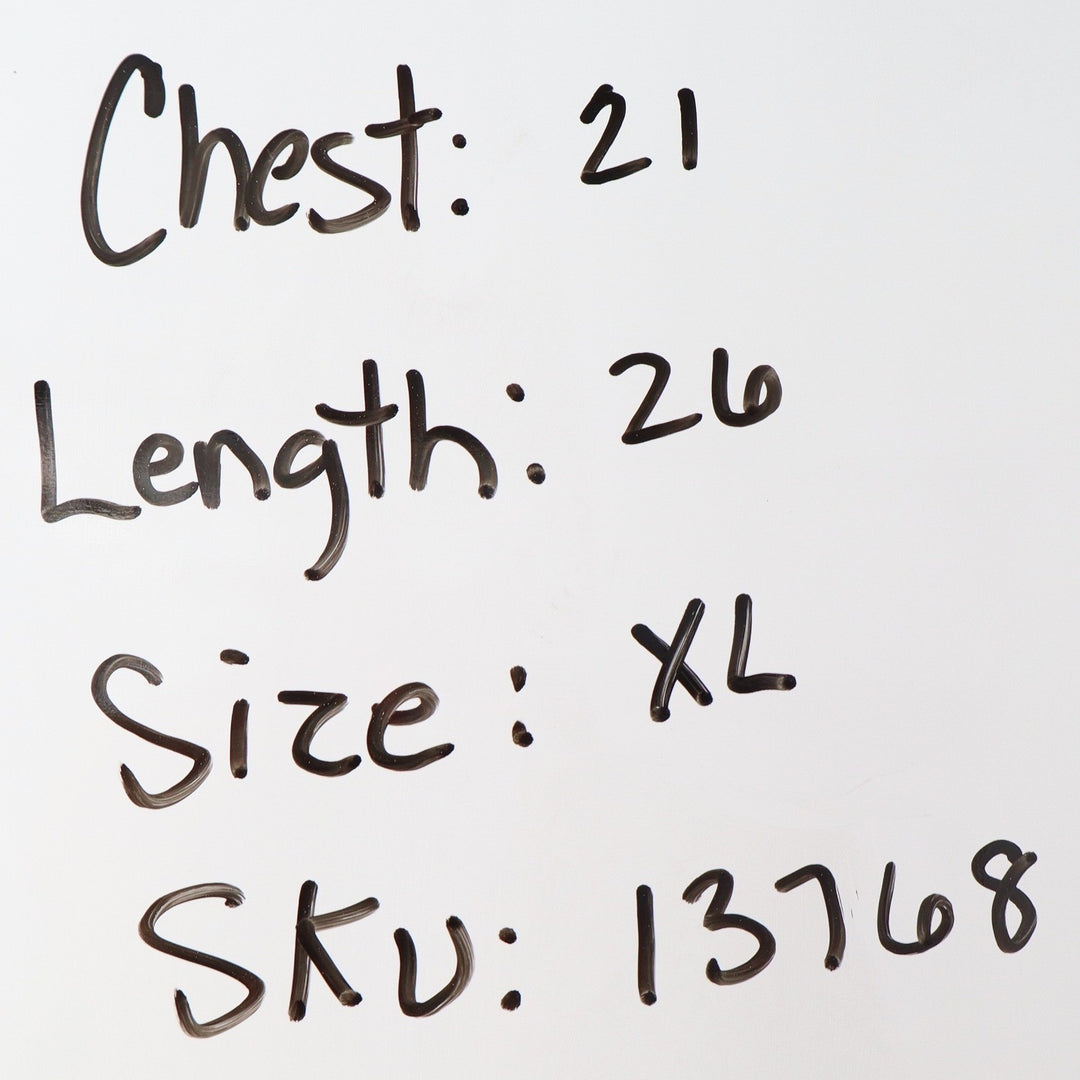 Chest: 21
Length: 26
Size: XL
Sku: 13768